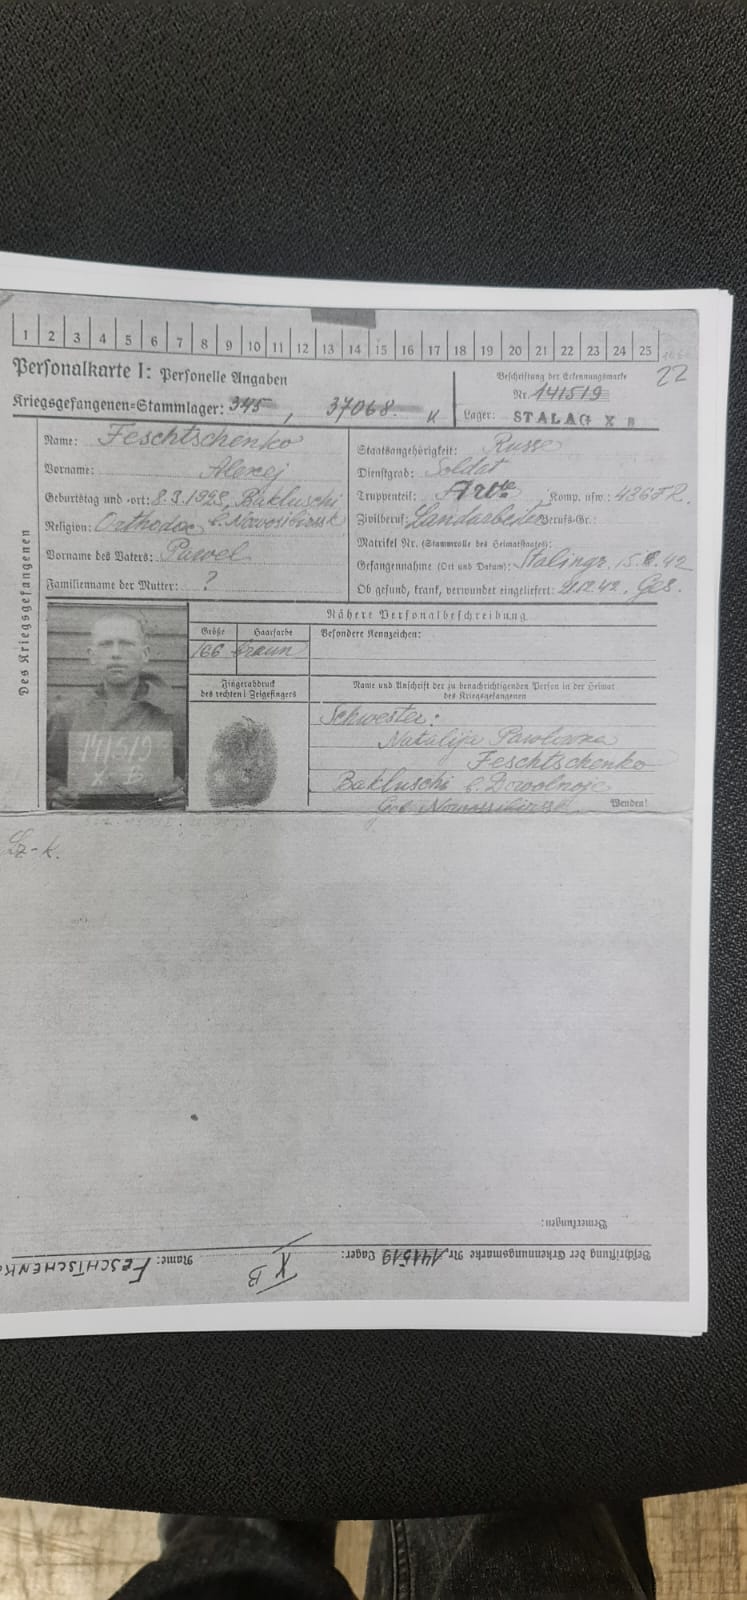 1 2 3 4 5 6 7 8 9 10 11 12 13 14 15 16 17 18 19 20 21 22 23 24 25
22
Personalkarte I: Personelle Angaben
Kriegsgefangenen=Stammlager: 345, 37068
Beschriftung der Erkennungsmarke
Nr. 141519
Lager: STALAG X B
Des Kriegsgefangenen
Name: Feschtschenko
Vorname: Alexej
Geburtstag und =ort: Bakluschi
Religion: Orthodox b. Nowosibirssk
Vorname des Vaters: Pawel
Familienname der Mutter: ?
Staatsangehörigkeit: Russe
Dienstgrad: Soldat
Truppenteil: Komp. usw.:
Zivilberuf: Landarbeiter Berufs-Gr.:
Matrikel Nr. (Stammrolle des Heimatstaates):
Gefangennahme (Ort und Datum): Stalingr. 42
Ob gesund, krank, verwundet eingeliefert: Ges.
Nähere Personalbeschreibung
Größe Haarfarbe Besondere Kennzeichen:
166 braun
Fingerabdruck
des rechten! Zeigefingers
Name und Anschrift der zu benachrichtigenden Person in der Heimat
des Kriegsgefangenen
Schwester:
Natalija Pawlowna
Feschtschenko
Bakluschi b. Dowolnoje
Wenden!
141519
X B
Bemerkungen:
Beschriftung der Erkennungsmarke Nr. 141519 Lager: X B Name: FESCHTSCHENK